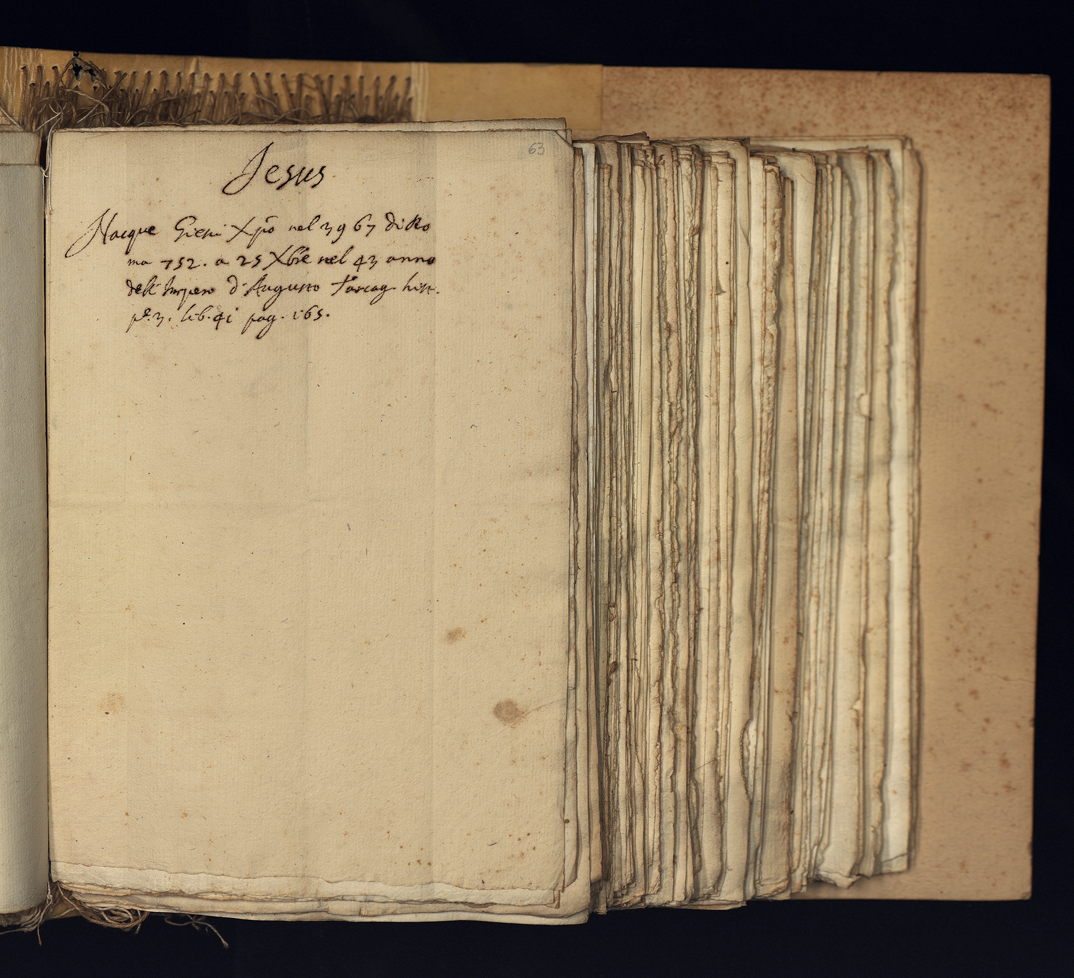 63
Jesus
Nacque Giesù Xpõ nel 3967 di Ro
ma 752. a 25 Xbre nel 43 anno
dell'Impero d'Augusto Tarcag. hist.
pe. 3. lib. 41 pag. 165.